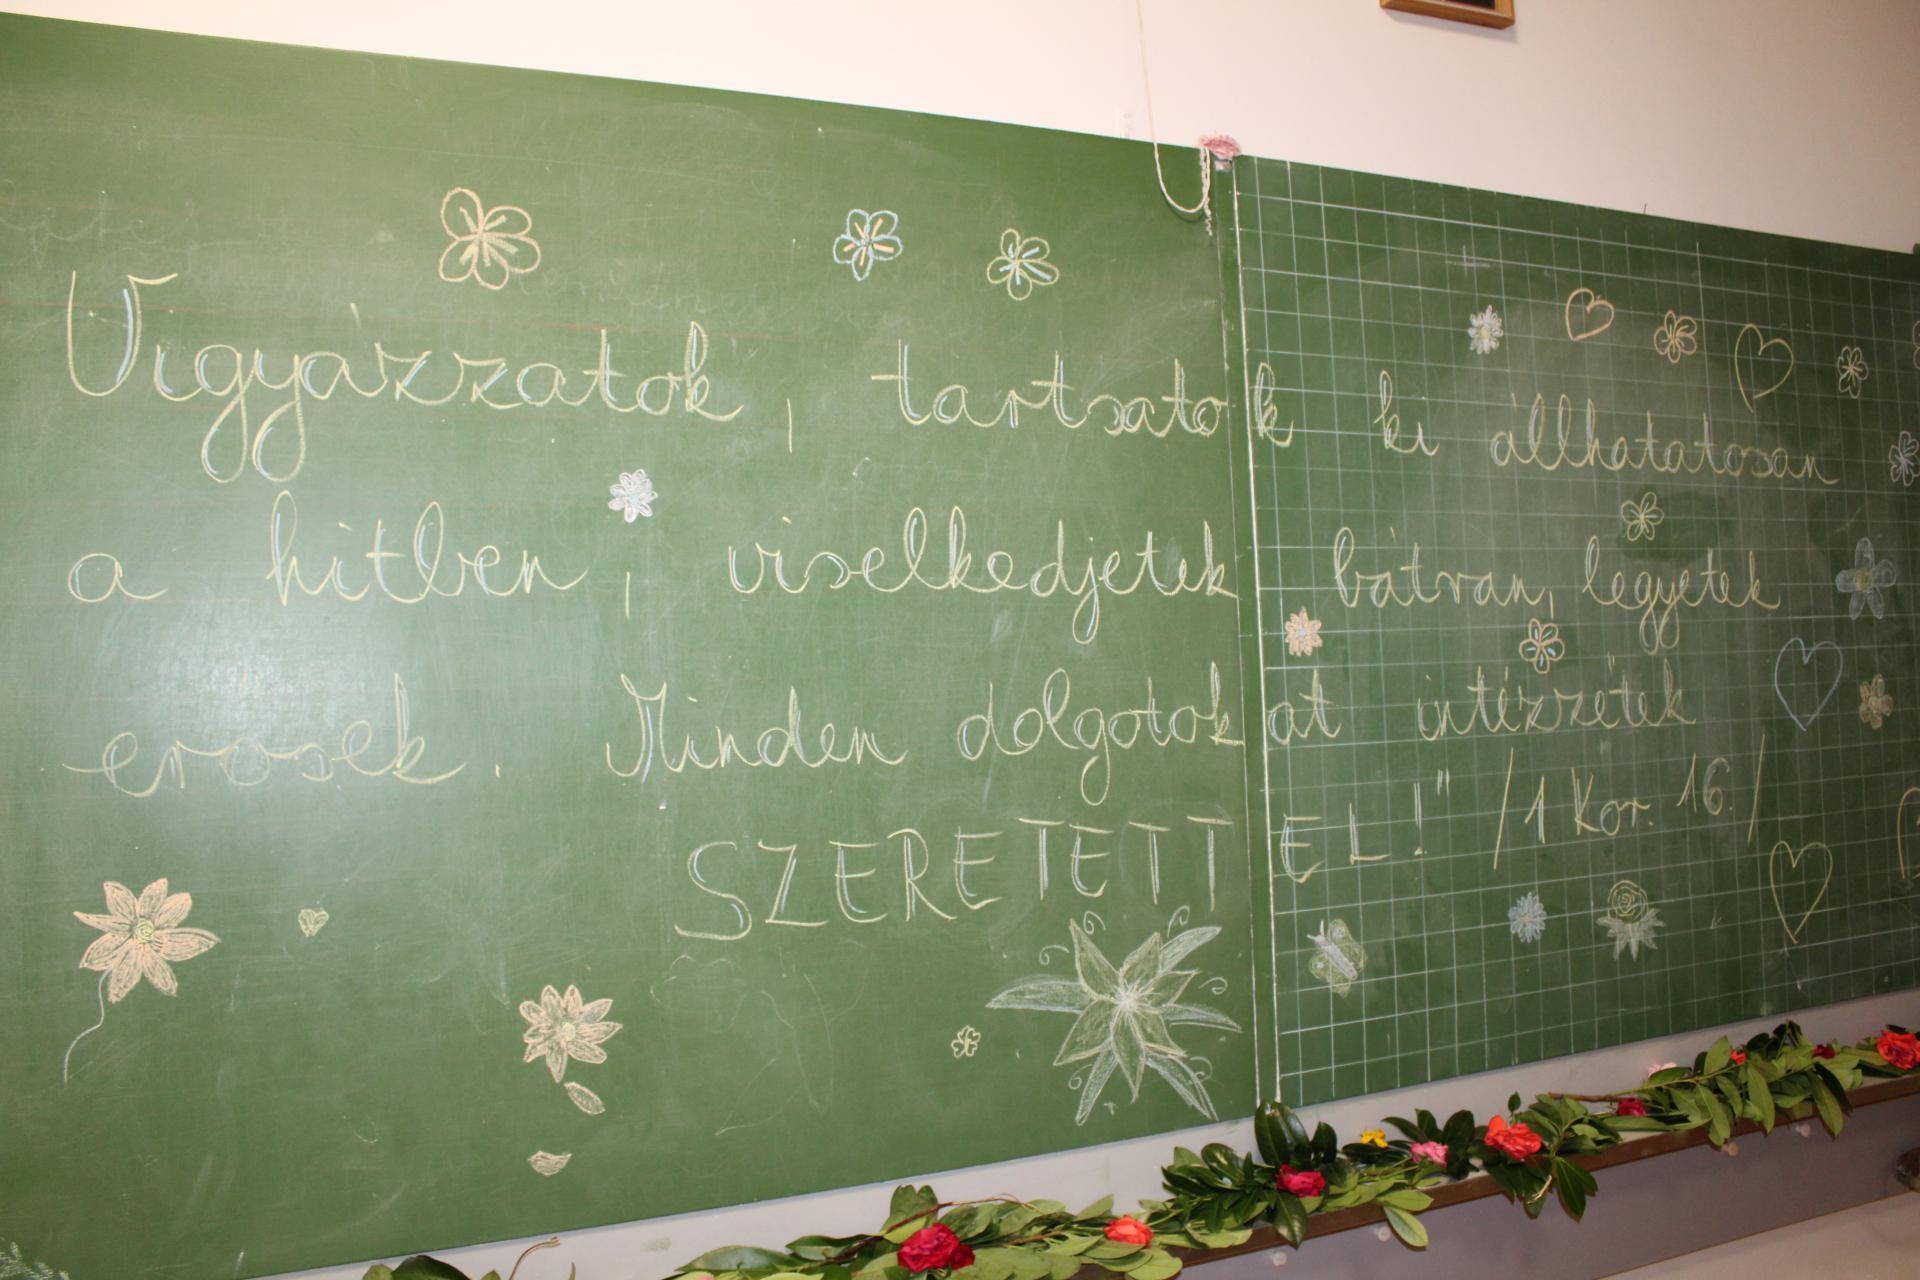 Vigyázzatok, tartsatok ki állhatatosan
a hitben, viselkedjetek bátran, legyetek
erősek. Minden dolgotokat intézzétek
SZERETETTEL!" /1 Kor. 16./